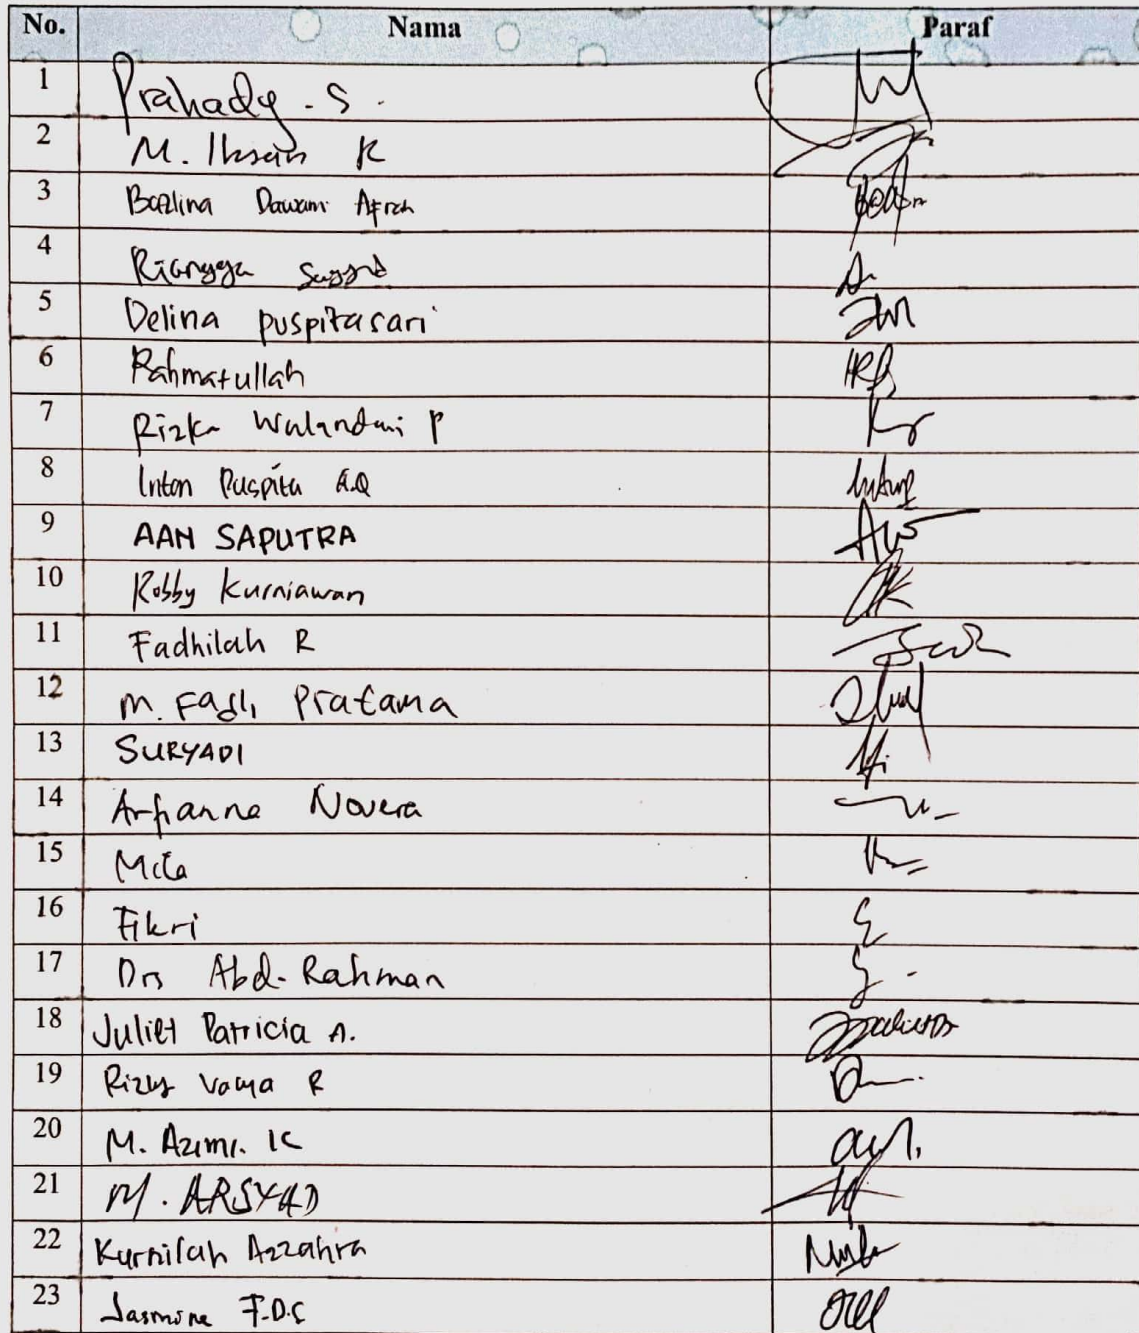 No. Nama Paraf
1 Prahady . S .
2 M. Ihsan K
3 Bazlina Dawami Afrah
4 Riangga
5 Delina puspitasari
6 Rahmatullah
7 Rizka Wulandari P
8 Inton Puspita A.Q
9 AAN SAPUTRA
10 Robby Kurniawan
11 Fadhilah R
12 M. Fadli Pratama
13 SURYADI
14 Arfianne Novera
15 Mita
16 Fikri
17 Drs Abd. Rahman
18 Juliet Patricia A.
19 Rizky R
20 M. Azimi. K
21 M. ARSYAD
22 Kurnilah Azzahra
23 Jasmine F.D.C